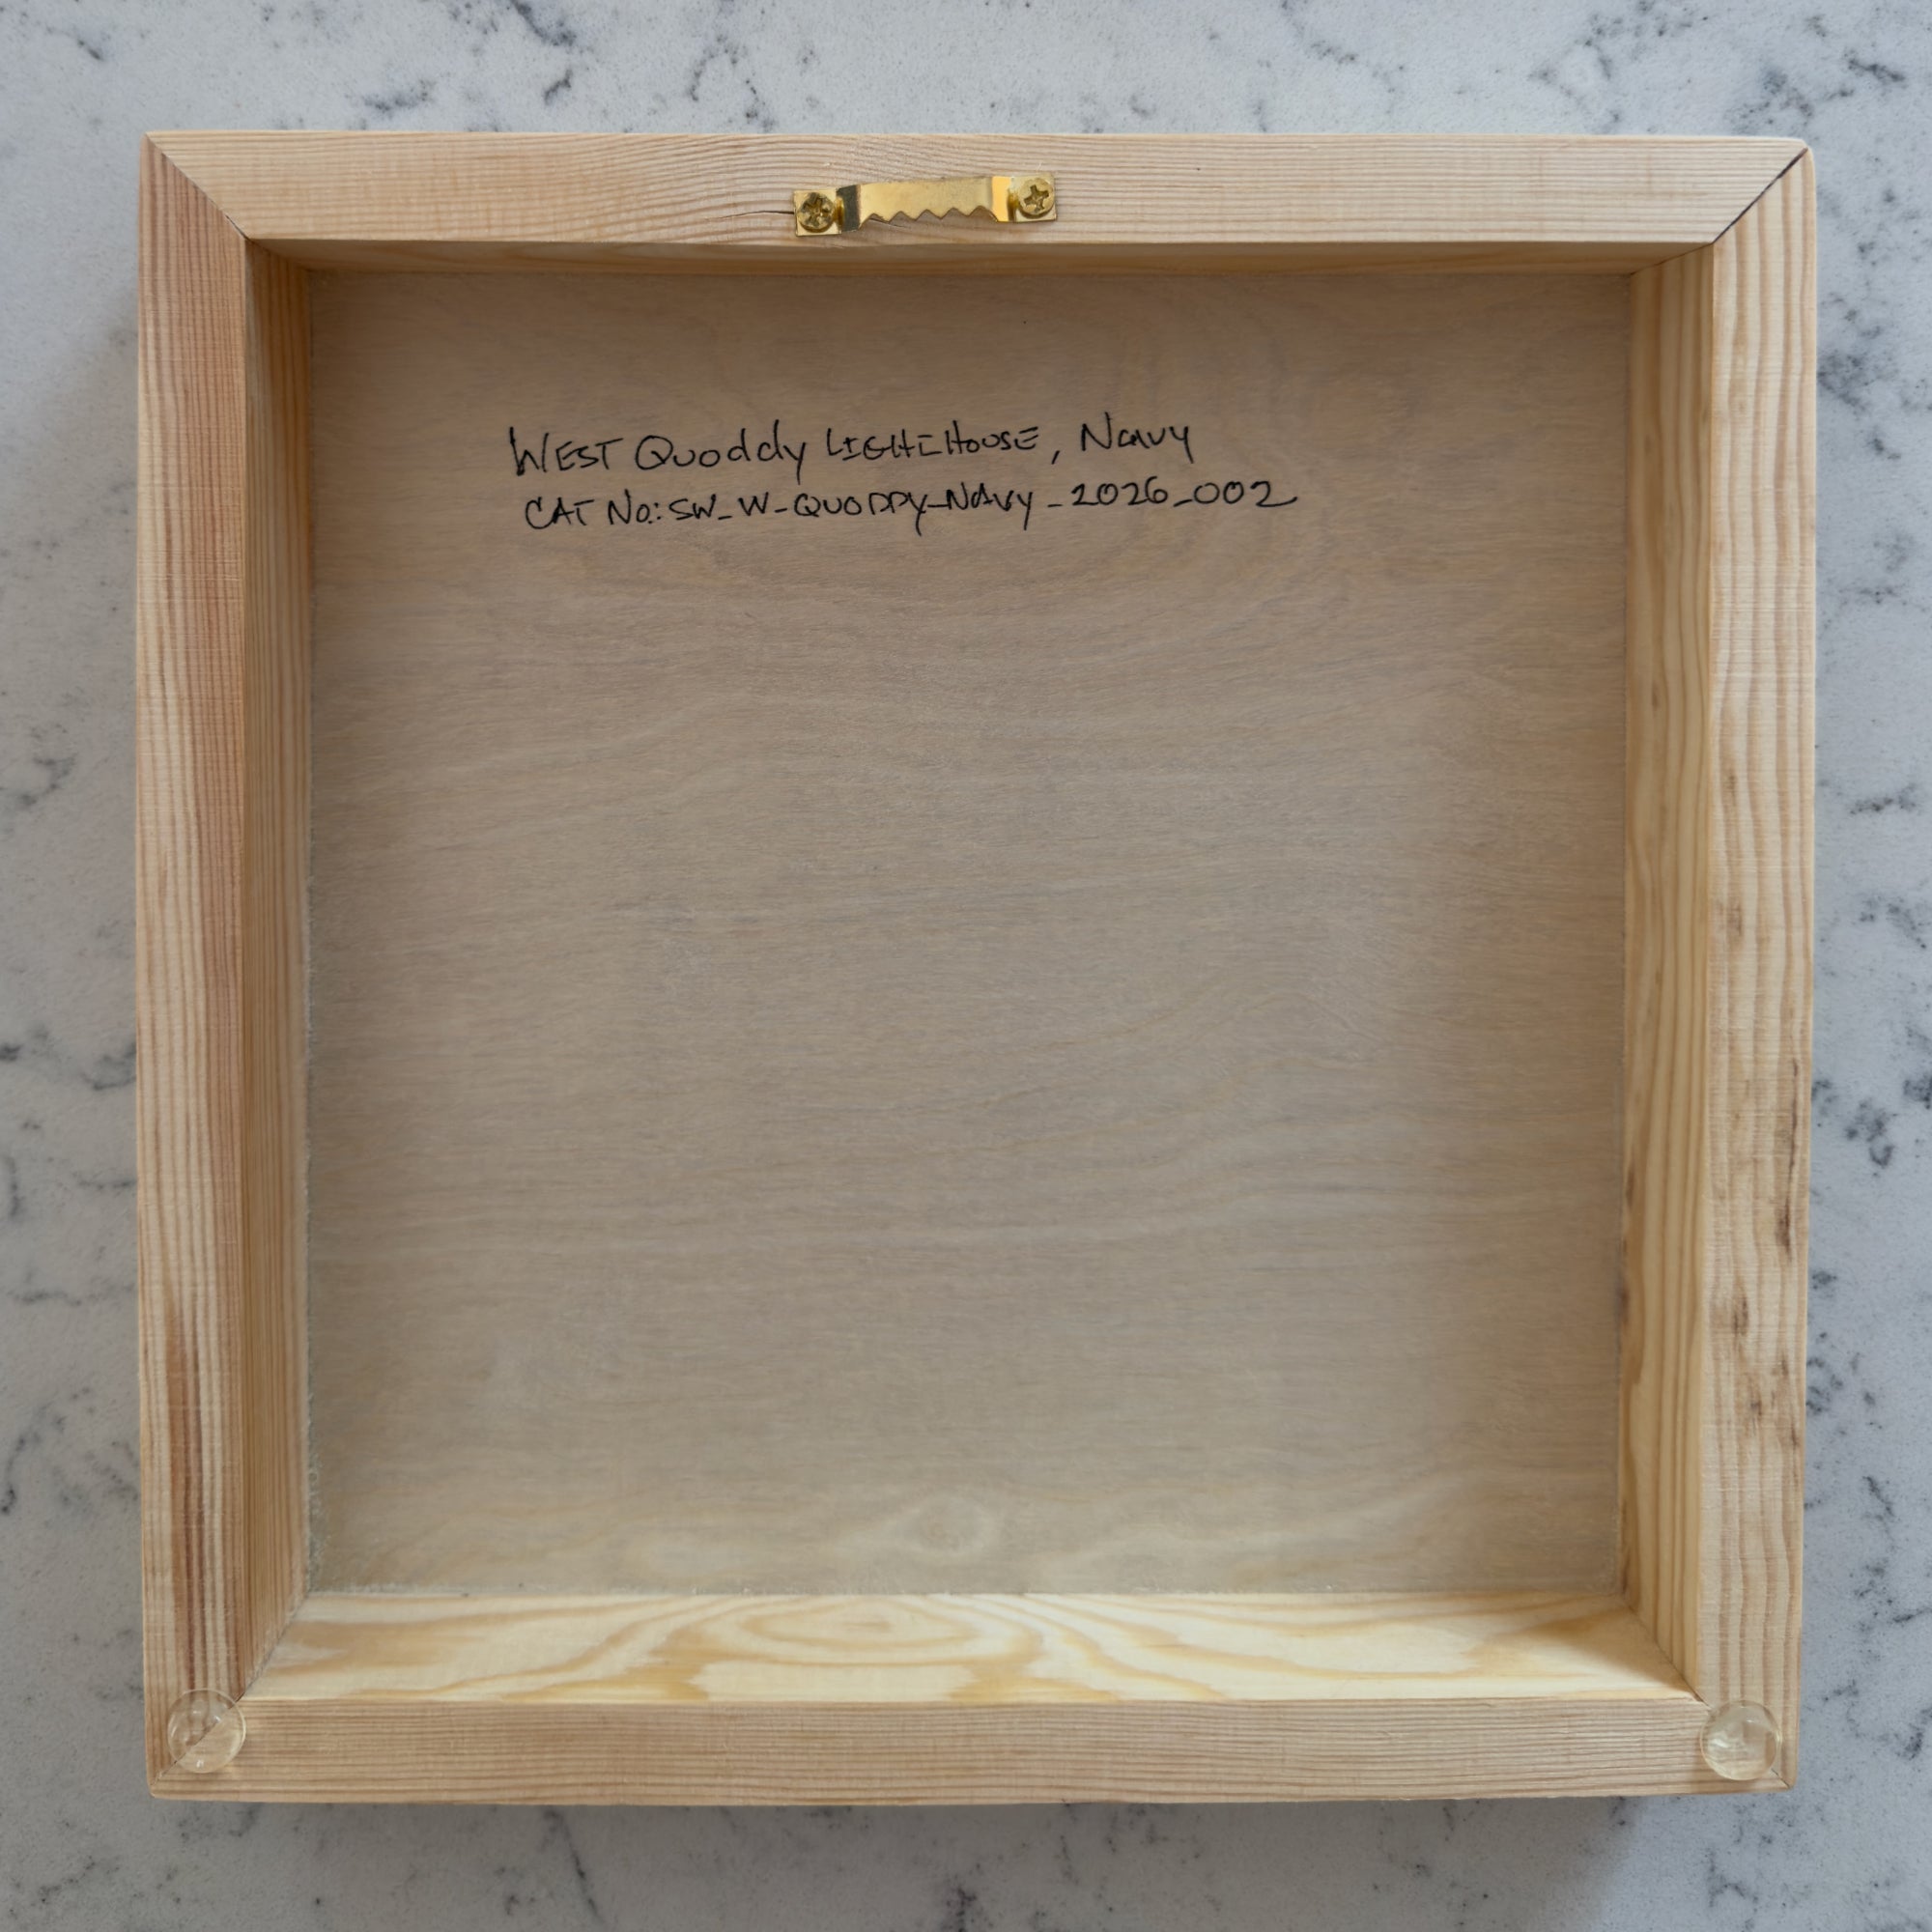 West Quoddy LIGHTHOUSE, Navy
CAT No.: SW_W-QUODDY-NAVY_2026_002